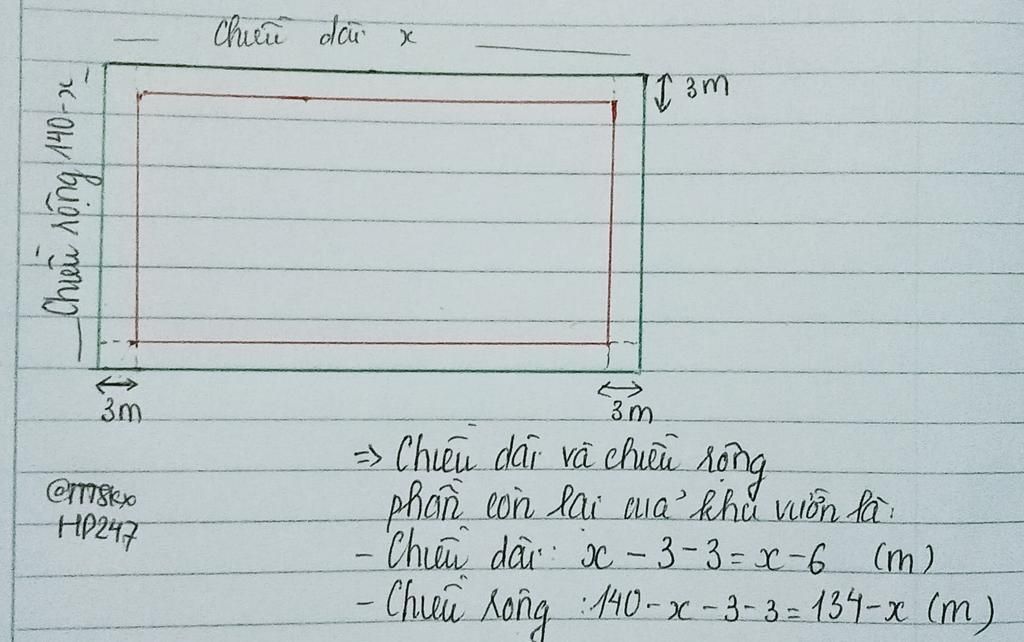 Chiều dài x
3m
Chiều rộng 140-x
3m 3m
=> Chiều dài và chiều rộng
phần còn lại của khu vườn là:
- Chiều dài: x - 3 - 3 = x - 6 (m)
HP247
- Chiều rộng : 140 - x - 3 - 3 = 134 - x (m)